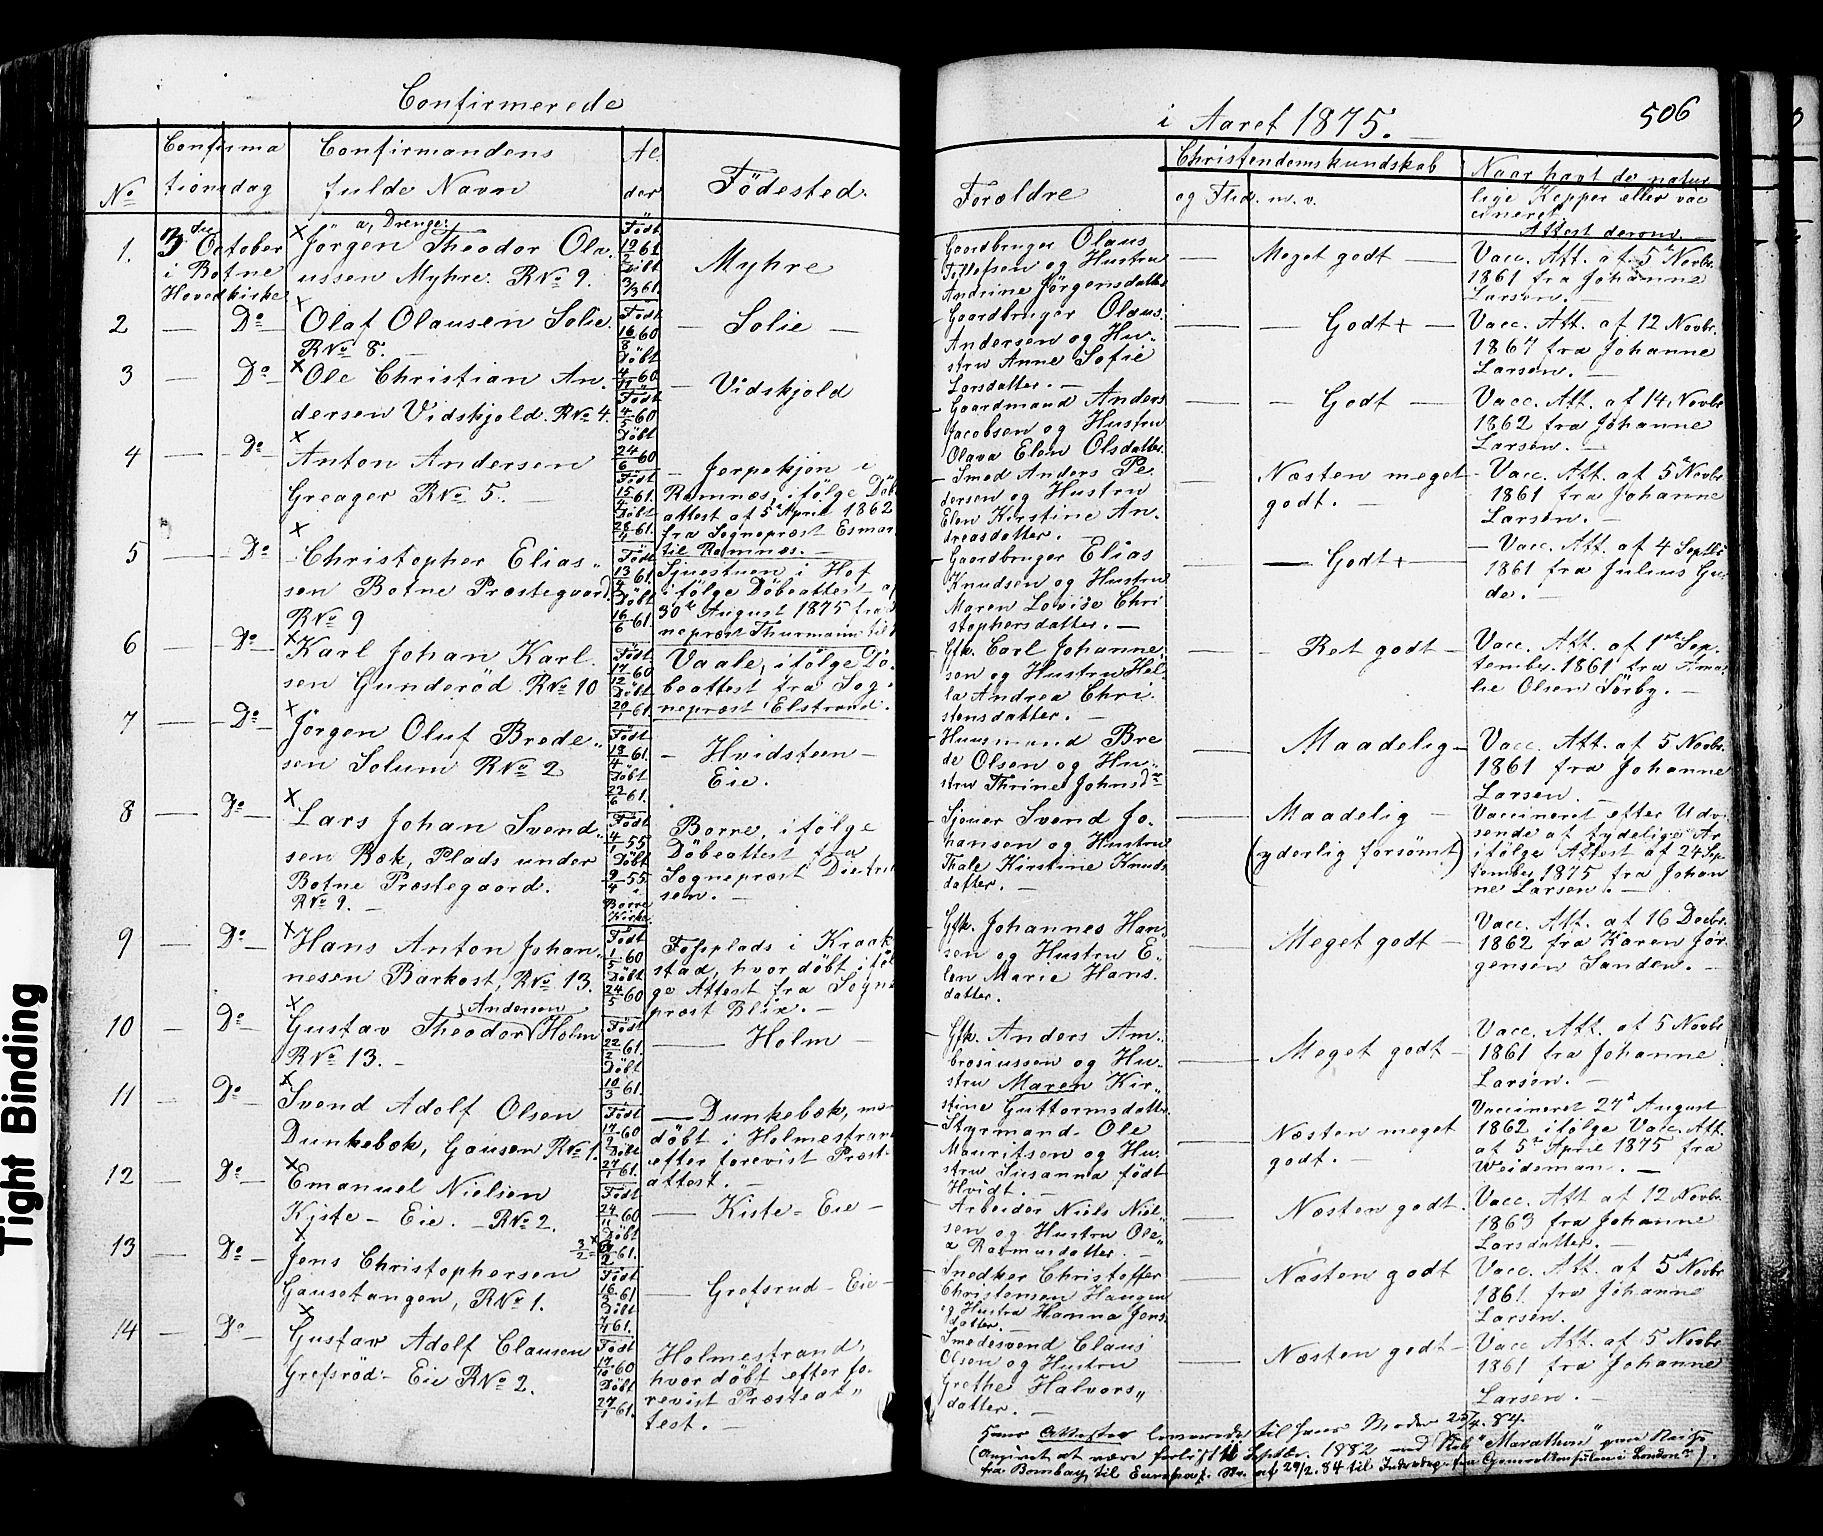 Confirmerede
i Aaret 1875.
506
No
Confirma
tionsdag
Confirmandens
fulde Navn
Al
der
Födested.
Forældre
Christendomskundskab
og Flid. m. v.
Naar havt de natur
lige Kopper eller vac
cineret.
Attest derom.
a, Drenge:
1.
3die October
i Botne
Hovedkirke
Jörgen Theodor Ola
ussen Myhre. R No 9.
Födt
19/2 61
Döbt
3/3 61.
Myhre
Gaardbruger Olaus
Tollefsen og Hustru
Andrine Jörgensdatter
Meget godt
Vacc. Att. af 5t Novbr.
1861 fra Johanne
Larsen.
2
Do
Olaf Olausen Solie.
R No 8.
Födt
16/8 60
Döbt
4/11 60
Solie
Gaardbruger Olaus
Andersen og Hu-
stru Anne Sofie
Larsdatter.
Godt +
Vacc. Att. af 12 Novbr.
1867 fra Johanne
Larsen.
3
Do
Ole Christian An
dersen Vidskjold. R No 4.
Födt
4/5 60
Döbt
24/6 60
Vidskjold
Gaardmand Anders
Jacobsen og Hustru
Olava Elen Olsdatter.
Godt
Vacc. Att. af 14. Novbr
1862 fra Johanne
Larsen.
4
Do
Anton Andersen
Greager R No 5.
Födt
15/4 61.
Döbt
28/4 61.
Jerpekjön i
Ramnæs, ifölge Döbe
attest af 5t April 1862
fra Sognepræst Esmar
til Ramnæs.
Smed Anders Pe
dersen og Hustru
Elen Kirstine An.
dreasdatter.
Næsten meget
godt.
Vacc. Att. af 5t Novbr
1861 fra Johanne
Larsen.
5
Do
Christopher Elias
sen Botne Præstegaard
R No 9
Födt
13/4 61.
Döbt
16/6 61.
Sjuestuen i Hof
ifölge Döbeattest
30te August 1875 fra
nepræst Thurmann til
Gaardbruger Elias
Knudsen og Hustru
Maren Lovise Chri
stophersdatter.
Godt +
Vacc. Att. af 4 Septbr
1861 fra Julius Gu
de.
6
Do
Karl Johan Karl
sen Gunderöd. R No 10
Födt
17/12 60
Döbt
20/1 61.
Vaale, ifölge Dö
beattest fra Sog
nepræst Elstrand.
Gfk. Carl Johanne
sen og Hustru Hel
la Andrea Chri
stensdatter.
Ret godt
Vacc. Att. af 1ste Sep.
tember 1861 fra Ama
lie Olsen Sörby.
7
Do
Jörgen Oluf Brede
sen Solum R No 2
Födt
18/4 61.
Döbt
22/6 61.
Hvidsteen
Eie.
Huusmand Bre
de Olsen og Hu
stru Thrine Johnsdtr
Maadelig
Vacc. Att. af 5 Novbr.
1861 fra Johanne
Larsen.
8
Do
Lars Johan Svend
sen Bæk, Plads under
Botne Præstegaard.
R No 9.
Födt
4/1 55
Döbt
9/4 55
i
Borre
Kirke.
Borre, ifölge
Döbeattest fra
Sognepræst Dietri
sen.
Sjöuer Svend Jo.
hansen og Hustru
Thale Kirstine Knuds
datter.
Maadelig
(yderlig forsömt)
Vaccineret efter Udvi
sende af tydelige Ar
ifölge Attest af 24 Sep
tember 1875 fra Johan
ne Larsen.
9
Do
Hans Anton Johan
nesen Barkost, R No 13.
Födt
1/5 60
Döbt
24/5 60
Fossplads i Kraak
stad, hvor döbt iföl
ge Attest fra Sogne
præst Blix.
Gfk. Johannes Han
sen og Hustru E
len Marie Hans.
datter.
Meget godt
Vacc. Att. af 16 Decbr.
1862 fra Karen Jör
gensen Sanden.
10
Do
Andersen
Gustav Theodor Holm
R No 13.
Födt
22/2 61.
Döbt
10/3 61.
Holm
Gfk. Anders Am
brosiussen og Hu
stru Maren Kir
stine Guttormsdatter
Meget godt
Vacc. Att. af 5 Novbr
1861 fra Johanne
Larsen.
11
Do
Svend Adolf Olsen
Dunkebæk, Gausen R No 1.
Födt
17/9 60
Döbt
27/1 61.
Dunkebæk, me
döbt i Holmestran
efter forevist Præst
attest.
Styrmand Ole
Mauritsen og Hu
stru Susanna födt
Hvidt.
Næsten meget
godt.
Vaccineret 27t August
1862 ifölge Vacc. Att.
af 5t April 1875 fra
Weideman.
12
Do
Emanuel Nielsen
Kiste - Eie. - R No 2.
Födt
24/11 60
Döbt
3/2 61.
3/2
Kiste - Eie
Arbeider Niels Niel
sen og Hustru Ole
a Rasmusdatter.
Næsten godt.
Vacc. Att af 12 Novbr.
1863 fra Johanne
Larsdatter.
13
Do
Jens Christophersen
Gausetangen, R No 1.
Födt
16/3 61
Döbt
7/4 61.
Grefsrud - Eie
Snedker Christoffer
Christensen Haugen
og Hustru Hanna Jens
datter.
Næsten godt
Vacc. Att. af 5t Novbr
1861. fra Johanne
Larsen.
14
Do
Gustav Adolf Clausen
Grefsröd - Eie R No 2.
Födt
17/10 60
Döbt
27/1 61.
Holmestrand,
hvor döbt efter fo.
revist Præsteat
test.
Smedesvend Claus
Olsen og Hustru
Grethe Halvors
datter.
Næsten godt
Vacc Att. af 5 Novbr
1861 fra Johanne
Larsen.
Hans Attester leverede til hans Moder 25/4. 84.
(Angivet at være forlist 11 Septbr. 1882 med Skib "Marathon" paa Reise
fra Bombay til Europa, af 29/2. 84 til fra Generalkonsulen i London).
Tight Binding